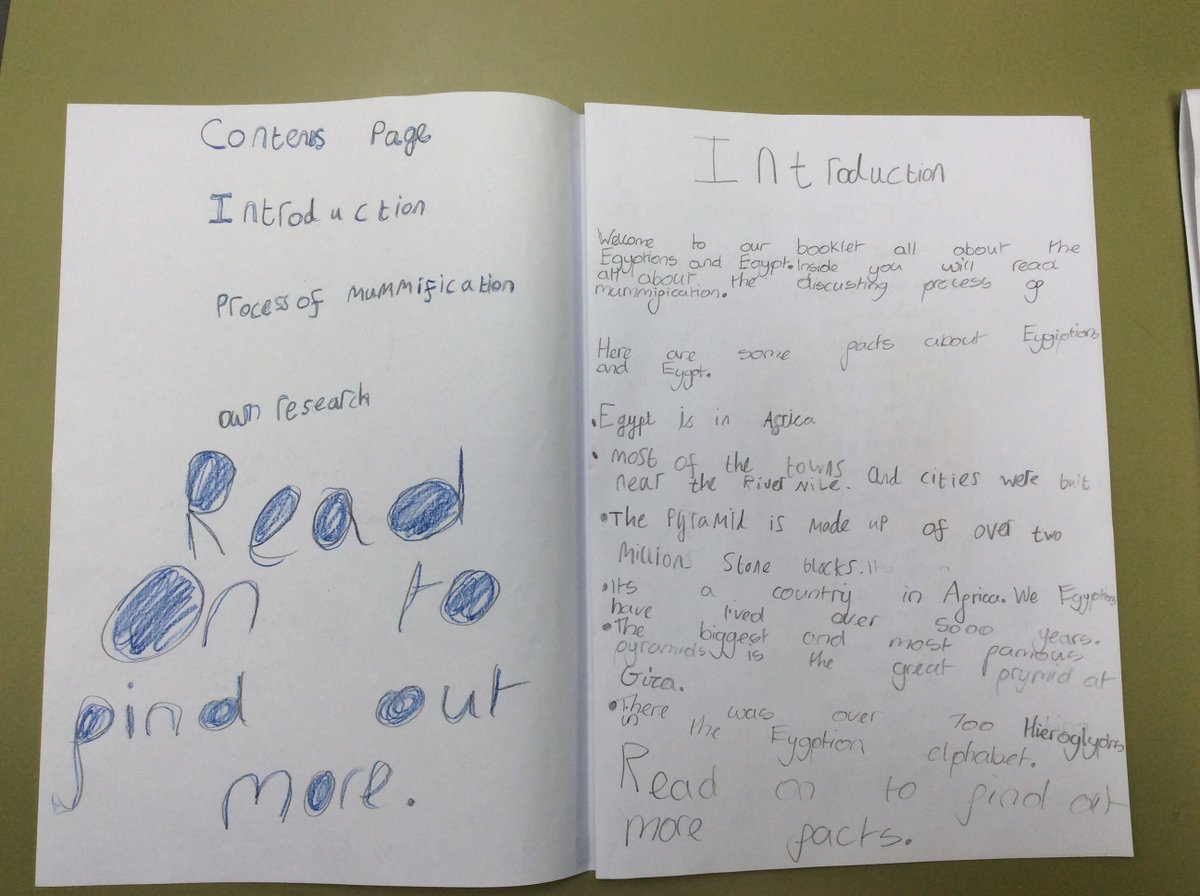 Contens Page
Introduction
Process of mummification
own research
Read
on to
find out
more.
Introduction
Welcome to our booklet all about the
Egyptions and Egypt. Inside you will read
all about the discusting process of
mummification.
Here are some facts about Eygiptions
and Eygpt.
•Egypt is in Africa
•most of the towns
near the River Nile. and cities were buit
•The Pyramid is made up of over two
Millions Stone blocks. Its a
•Its a country in Africa. We Egyptions
have lived over 5000 years.
•The biggest and most famous
pyramids is the great prymid at
Giza.
•There was over 700 Hieroglydhs
in the Eygption alphabet.
Read on to find out
more facts.